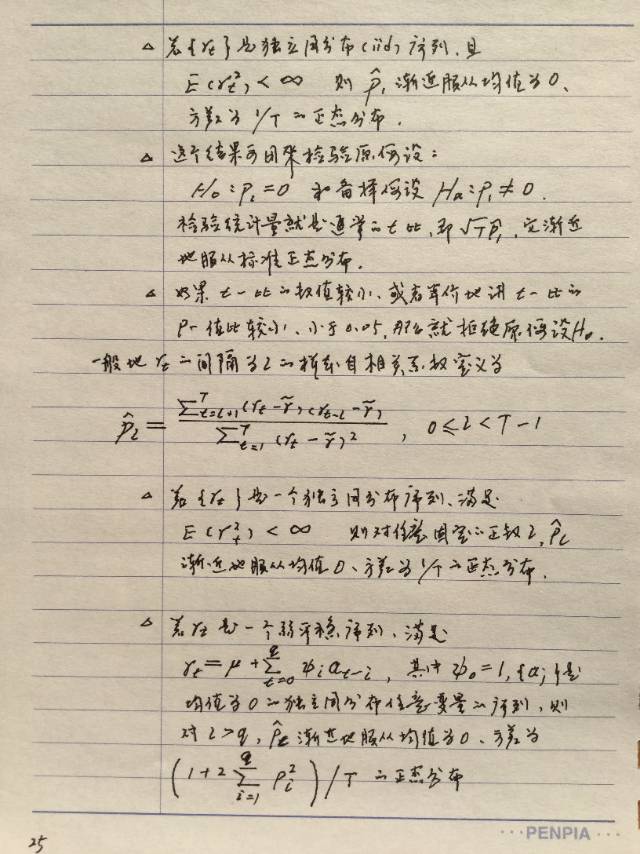 △ 若{rt}是独立同分布(iid)序列,且
E(rt²) < ∞ 则 p̂1 渐近服从均值为0、
方差为 1/T 的正态分布.
△ 这个结果可用来检验原假设:
H0: p1 = 0 和备择假设 Ha: p1 ≠ 0.
检验统计量就是通常的 t 比, 即 √T p̂1, 它渐近
地服从标准正态分布.
△ 如果 t-比的数值较小、或者等价地讲 t-比的
p-值比较小、小于0.05, 那么就拒绝原假设H0.
一般地 rt 的间隔为 l 的样本自相关系数定义为
p̂l = ∑_{t=l+1}^{T} (rt - r̄)(rt-l - r̄) / ∑_{t=1}^{T} (rt - r̄)² , 0 ≤ l < T-1
△ 若{rt}是一个独立同分布序列、满足
E(rt²) < ∞ 则对任意固定的正数 l, p̂l
渐近地服从均值0、方差为 1/T 的正态分布.
△ 若rt是一个弱平稳序列、满足
rt = μ + ∑_{t=0}^{q} ψi at-i , 其中 ψ0 = 1, {aj}是
均值为0的独立同分布任意变量的序列, 则
对 l > q, p̂l 渐近地服从均值为0、方差为
(1 + 2 ∑_{i=1}^{q} pi²) / T 的正态分布
25
···PENPIA···